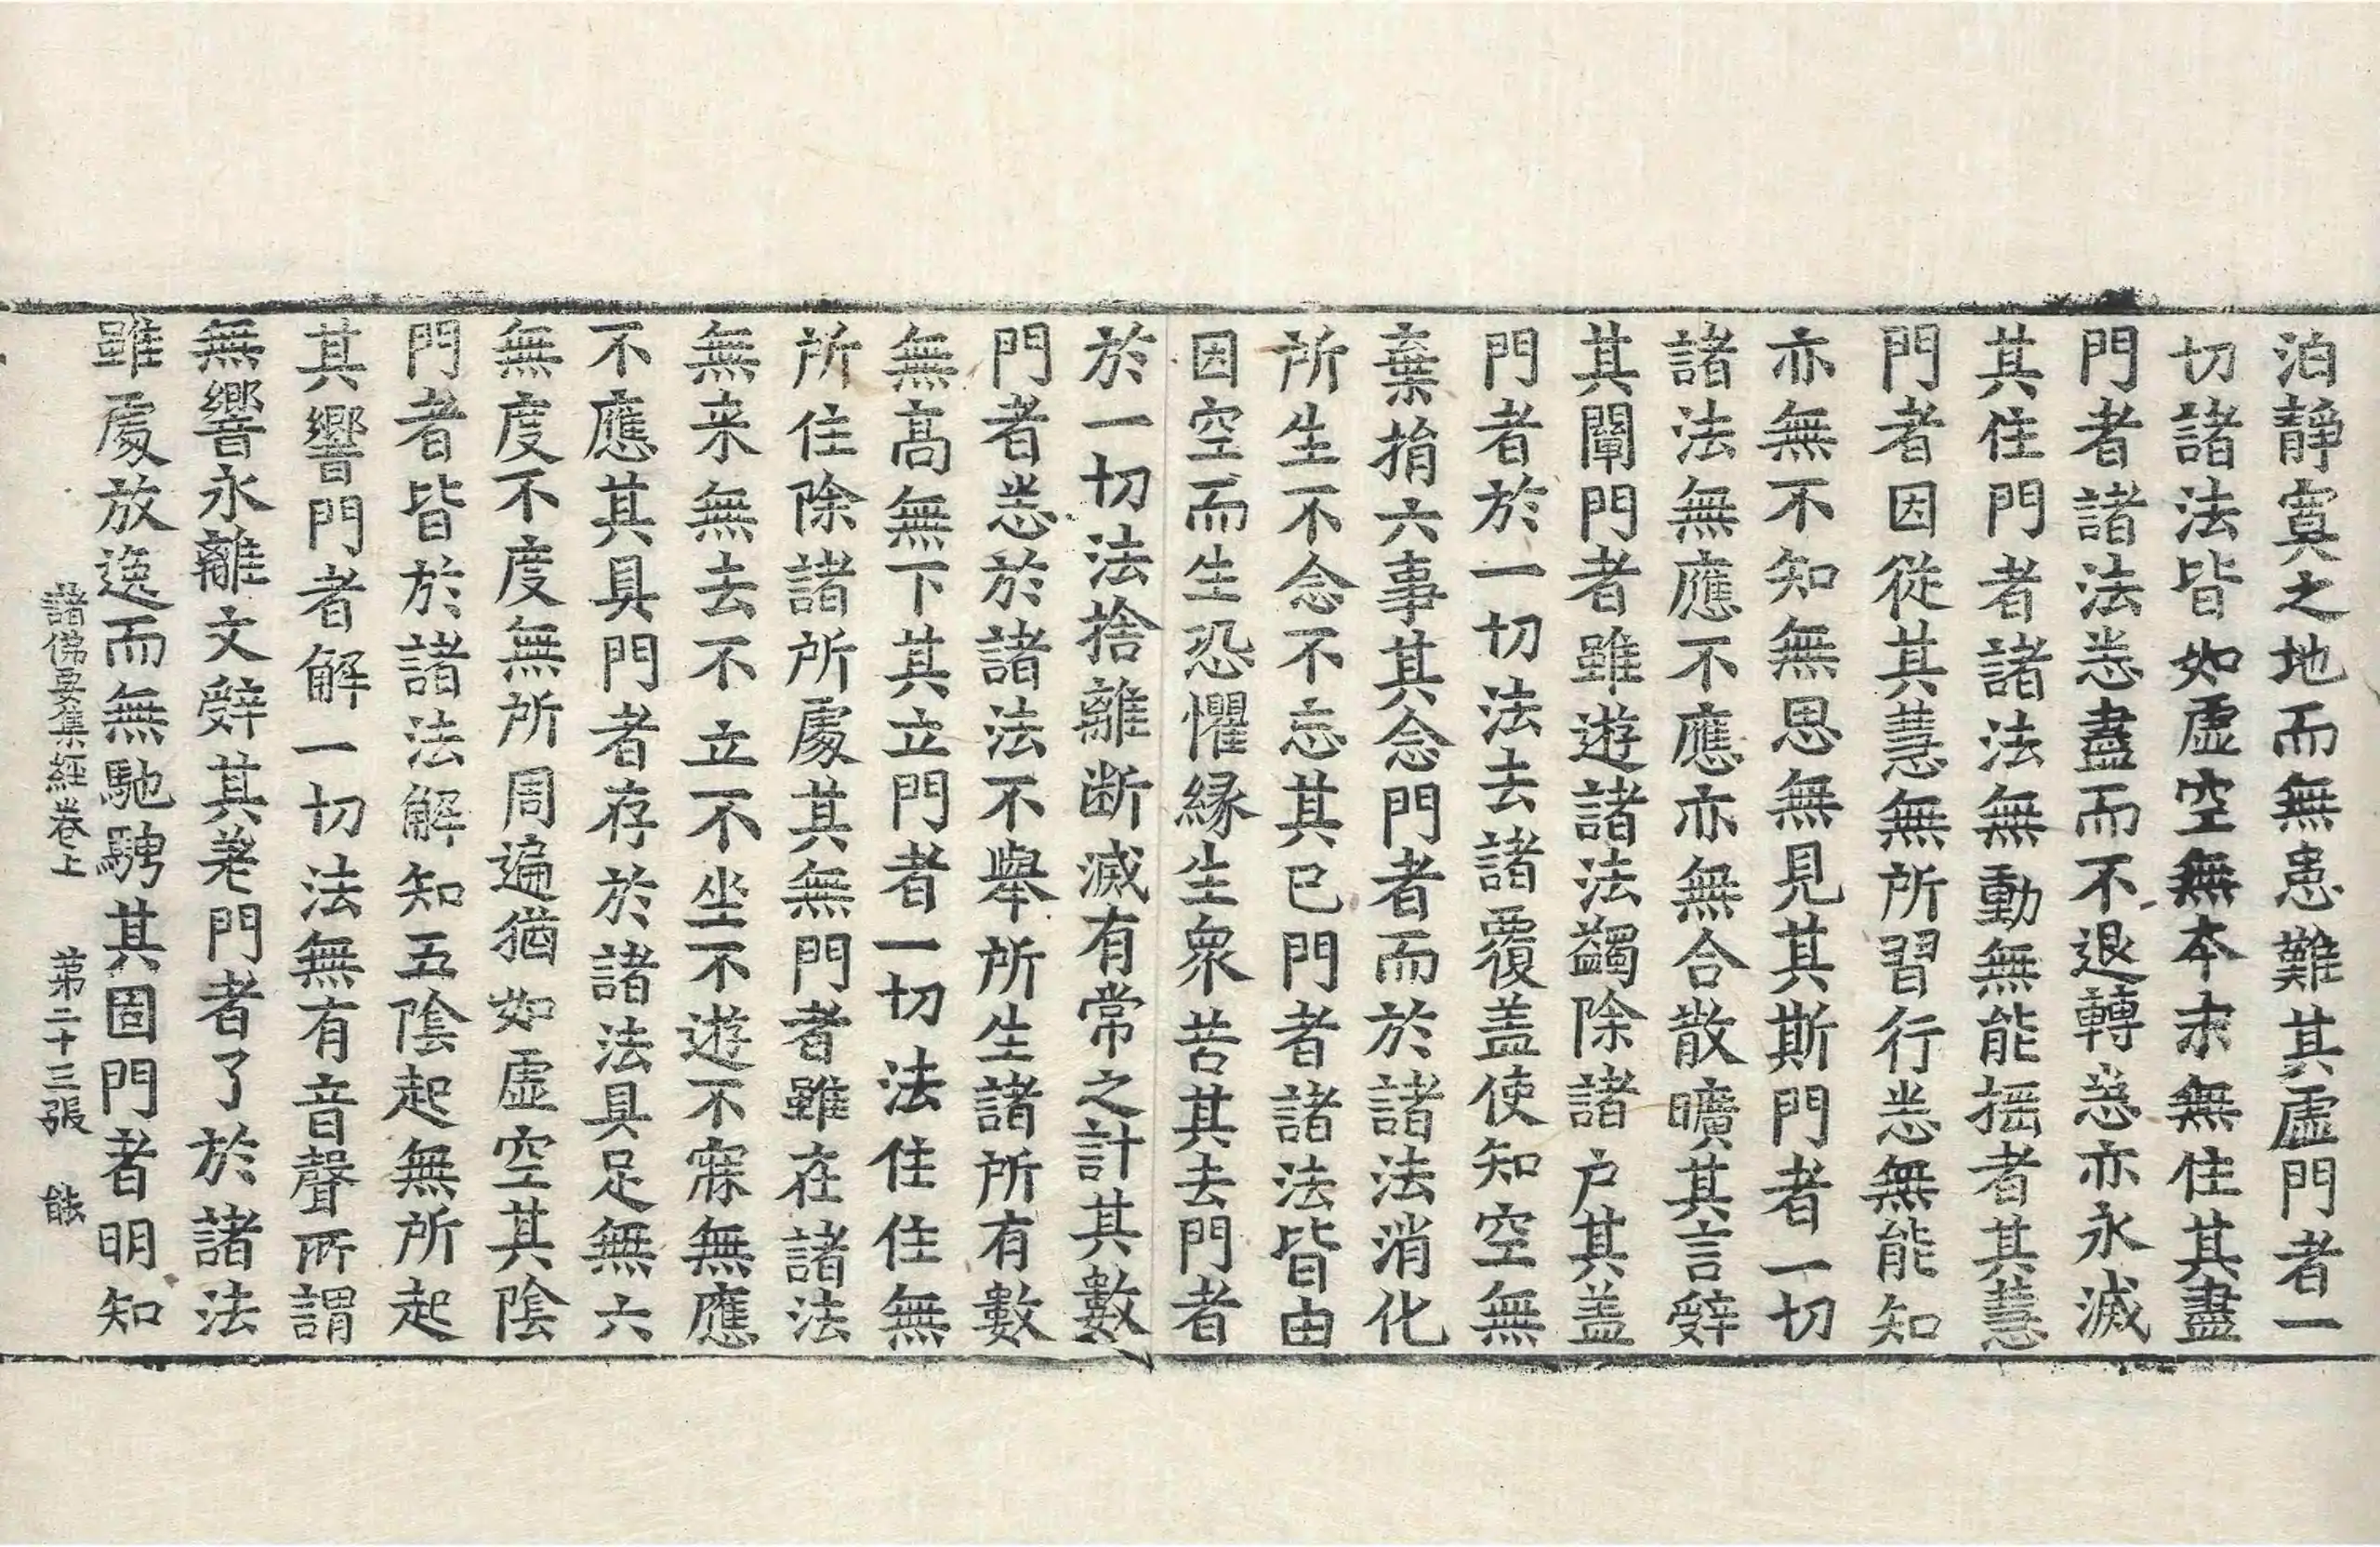 泊靜寞之地而無患難其虛門者一
切諸法皆如虛空無本末無住其盡
門者諸法悉盡而不退轉悉亦永滅
其住門者諸法無動無能揺者其慧
門者因從其慧無所習行悉無能知
亦無不知無恩無見其斯門者一切
諸法無應不應亦無合散曠其言辝
其闡門者雖遊諸法蠲除諸户其盖
門者於一切法去諸覆盖使知空無
棄捐六事其念門者而於諸法消化
所生不念不忘其已門者諸法皆由
因空而生恐懼縁生衆苦其去門者
於一切法捨離断滅有常之計其數
門者悉於諸法不舉所生諸所有數
無髙無下其立門者一切法住住無
所住除諸所處其無門者雖在諸法
無来無去不立不坐不遊不寐無應
不應其具門者存於諸法具足無六
無度不度無所周遍猶如虛空其陰
門者皆於諸法解知五陰起無所起
其響門者解一切法無有音聲所謂
無響永離文辝其耄門者了於諸法
雖處放逸而無馳騁其固門者明知
諸佛要集經卷上 第二十三張